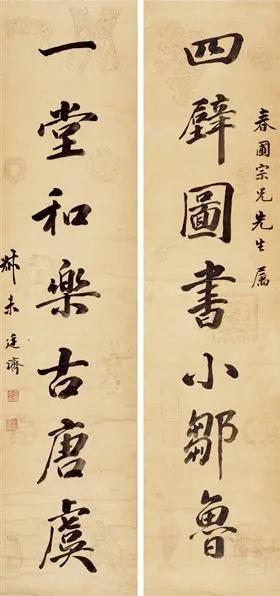 四壁圖書小鄒魯
春圃宗兄先生屬
一堂和樂古唐虞
叔未廷濟